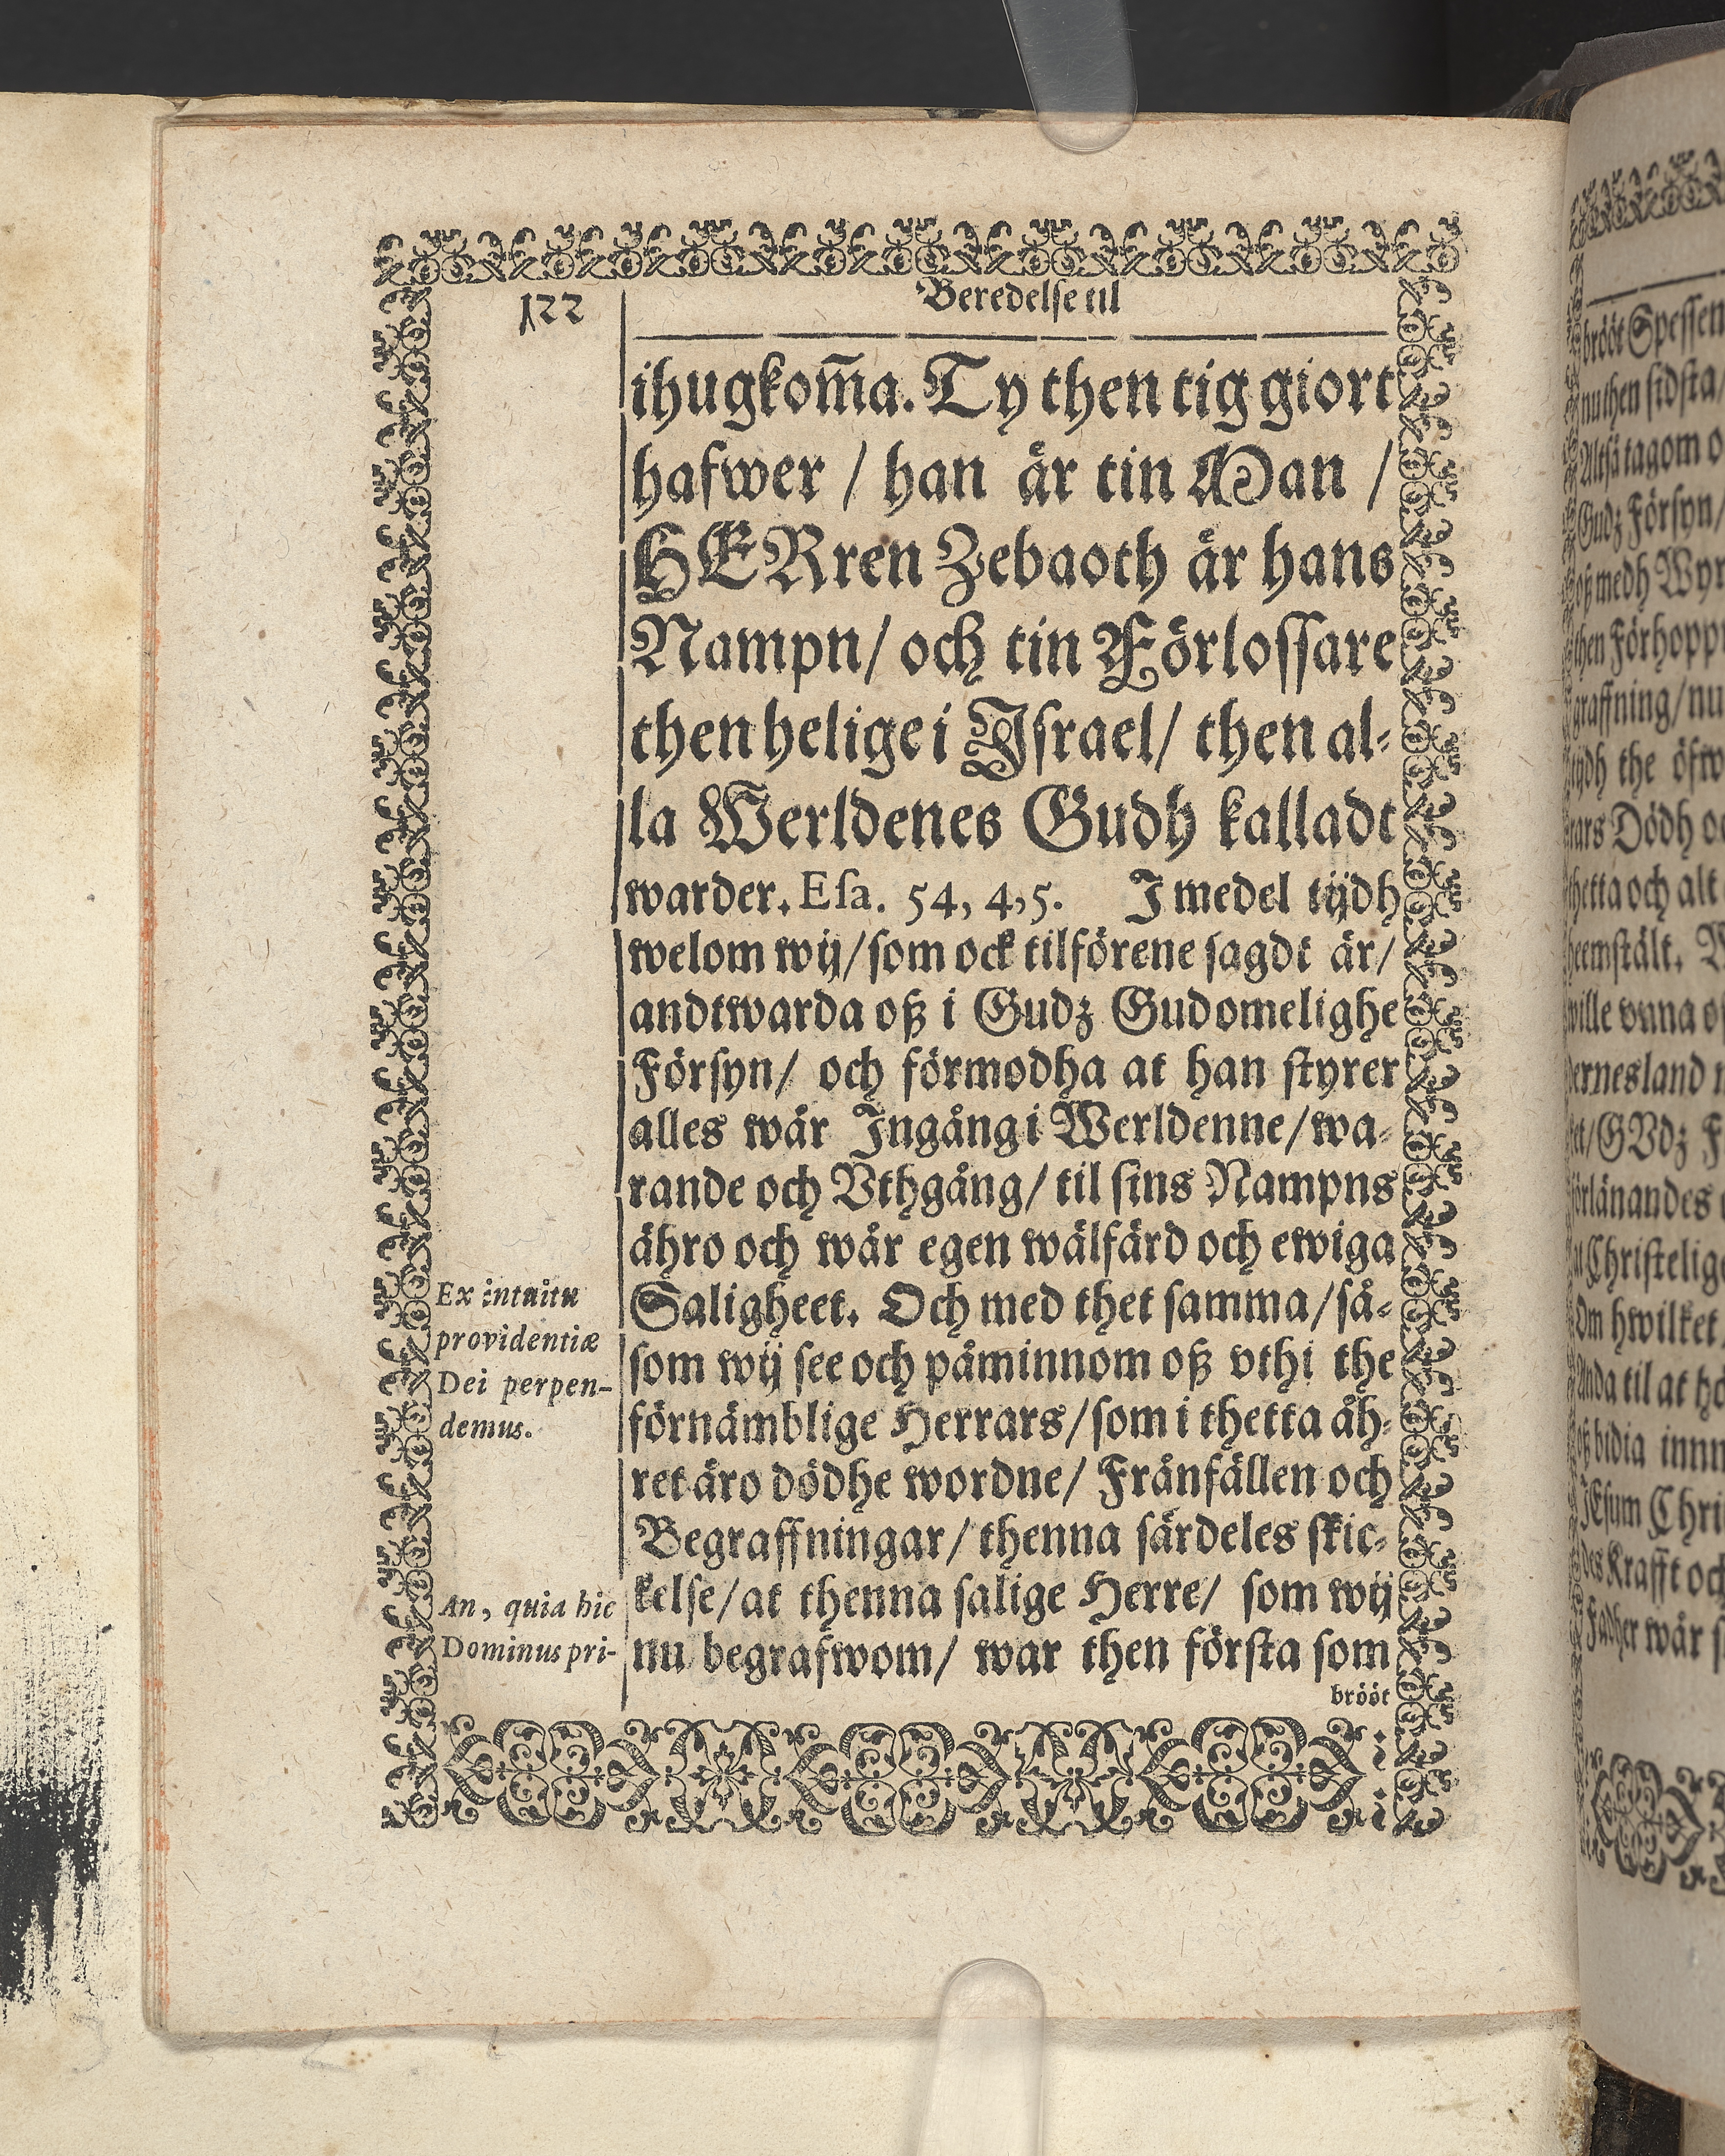 122
Beredelse til
ihugkom̃a. Ty then tig giort
hafwer / han är tin Man /
HERren Zebaoth är hans
Nampn / och tin Förlossare
then helige i Israel / then al-
la Werldenes Gudh kalladt
warder. Esa. 54, 4,5. I medel tijdh
welom wij / som ock tilförene sagdt är /
andtwarda oß i Gudz Gudomelighe
Försyn / och förmodha at han styrer
alles wår Ingång i Werldenne / wa-
rande och Vthgång / til sins Nampns
ähro och wår egen wälfärd och ewiga
Saligheet. Och med thet samma / så-
som wij see och påminnom oß vthi the
förnämblige Herrars / som i thetta åh-
ret äro dödhe wordne / Frånfällen och
Begraffningar / thenna särdeles skic-
kelse / at thenna salige Herre / som wij
nu begrafwom / war then första som
brööt
Ex intuitu
providentiæ
Dei perpen-
demus.
An, quia hic
Dominus pri-
brööt Spessen
nu then sidsta /
Altså tagom o
Gudz Försyn /
oß medh Wyr
then Förhopp
graffning / nu
tijdh the öfw
rars Dödh oc
thetta och alt
heemstält. W
wille vnna o
dernesland
et / GVdz F
förlänandes
Christelige
Om hwilket
Anda til at hö
oß bidia innn
JEsum Chri
des Krafft och
Fadher wår s